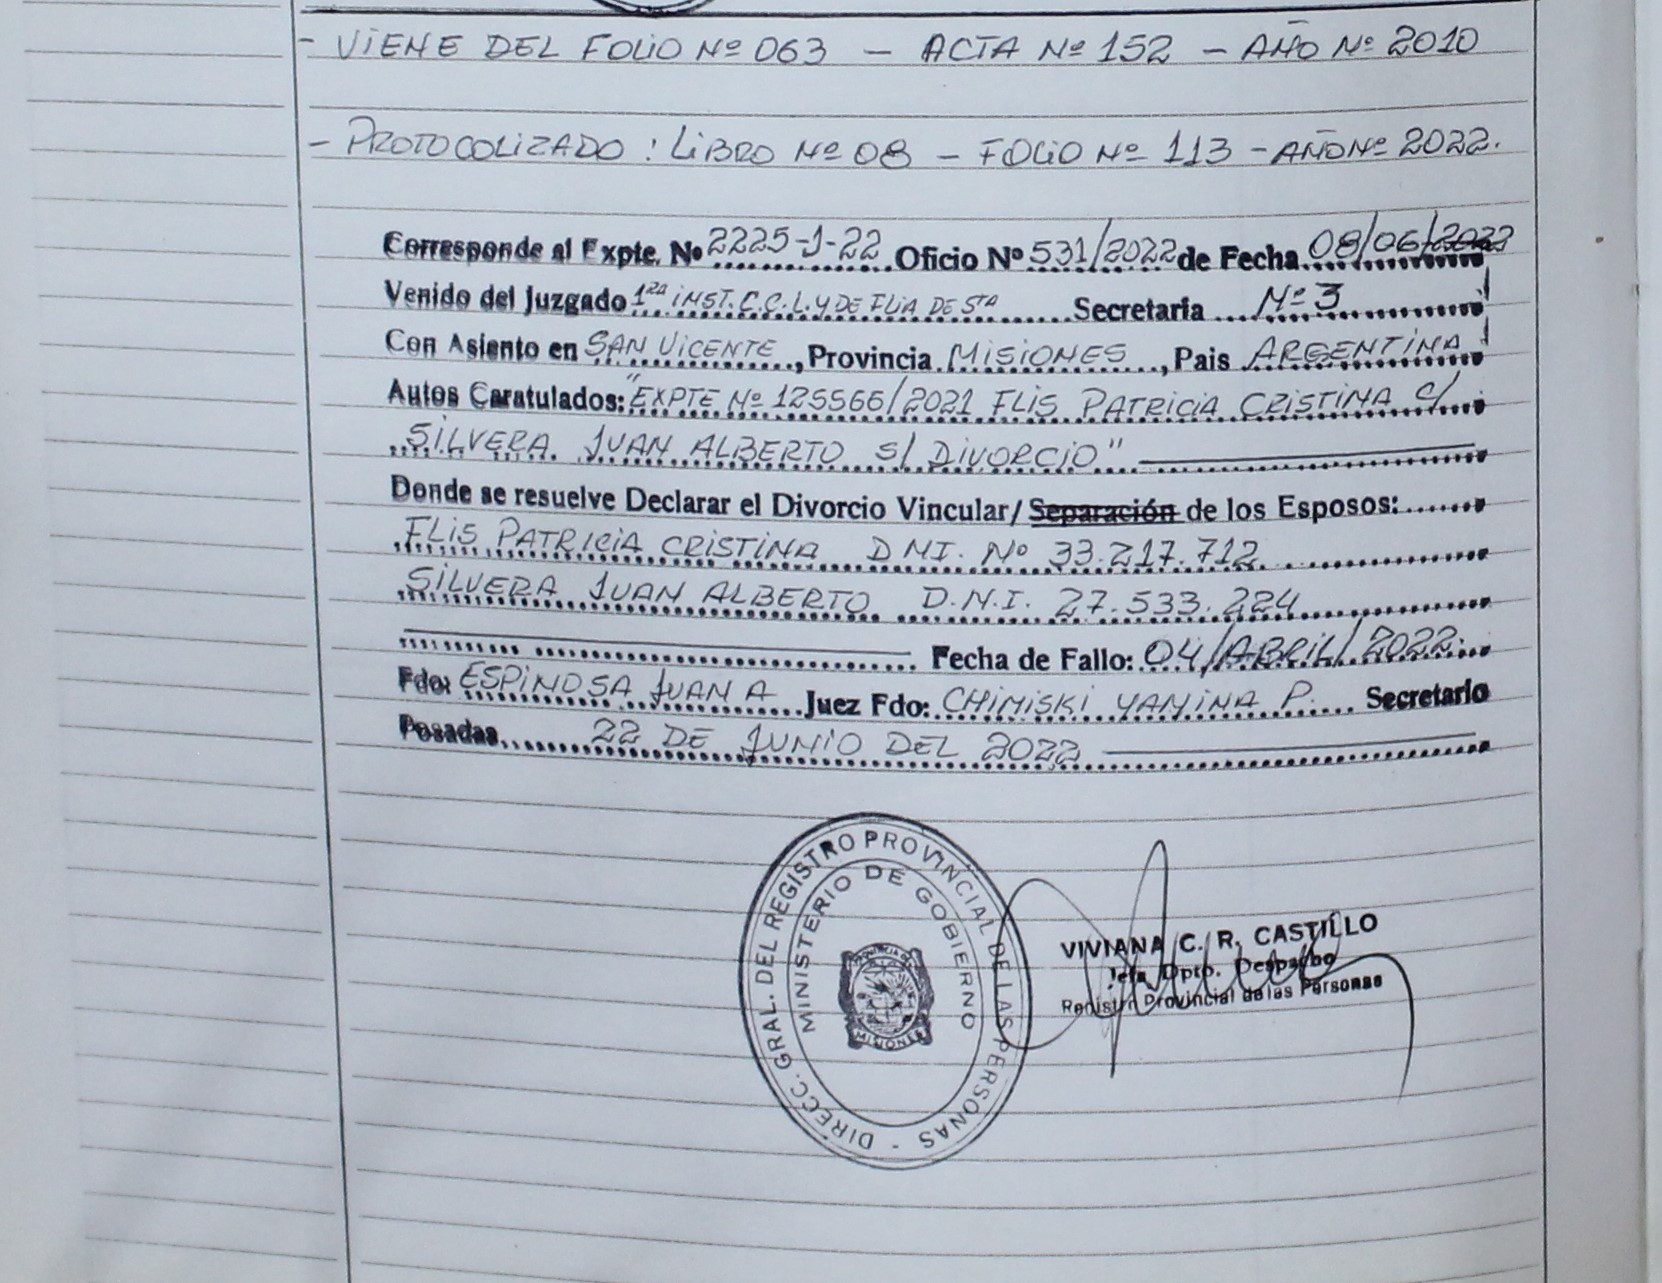 - VIENE DEL FOLIO Nº 063 - ACTA Nº 152 - AÑO Nº 2010
- PROTOCOLIZADO : LIBRO Nº 08 - FOLIO Nº 113 - AÑO Nº 2022.
Corresponde al Expte. Nº 2225-J-22 Oficio Nº 531/2022 de Fecha 08/06/2022
Venido del Juzgado 1ra INST. C.C.L. Y DE FLIA DE Sta Secretaria Nº 3
Con Asiento en SAN VICENTE, Provincia MISIONES, Pais ARGENTINA
Autos Caratulados: "EXPTE Nº 125566/2021 FLIS PATRICIA CRISTINA C/
SILVERA JUAN ALBERTO S/ DIVORCIO"
Donde se resuelve Declarar el Divorcio Vincular/ Separación de los Esposos:
FLIS PATRICIA CRISTINA DNI. Nº 33.217.712
SILVERA JUAN ALBERTO D.N.I. 27.533.224
Fecha de Fallo: 04/ABRIL/2022
Fdo: ESPINOSA JUAN A Juez Fdo: CHIMISKI YANINA P. Secretario
Posadas, 22 DE JUNIO DEL 2022
DIRECC. GRAL. DEL REGISTRO PROVINCIAL DE LAS PERSONAS -
MINISTERIO DE GOBIERNO
MISIONES
VIVIANA C. R. CASTILLO
Jefa Dpto. Despacho
Registro Provincial de las Personas